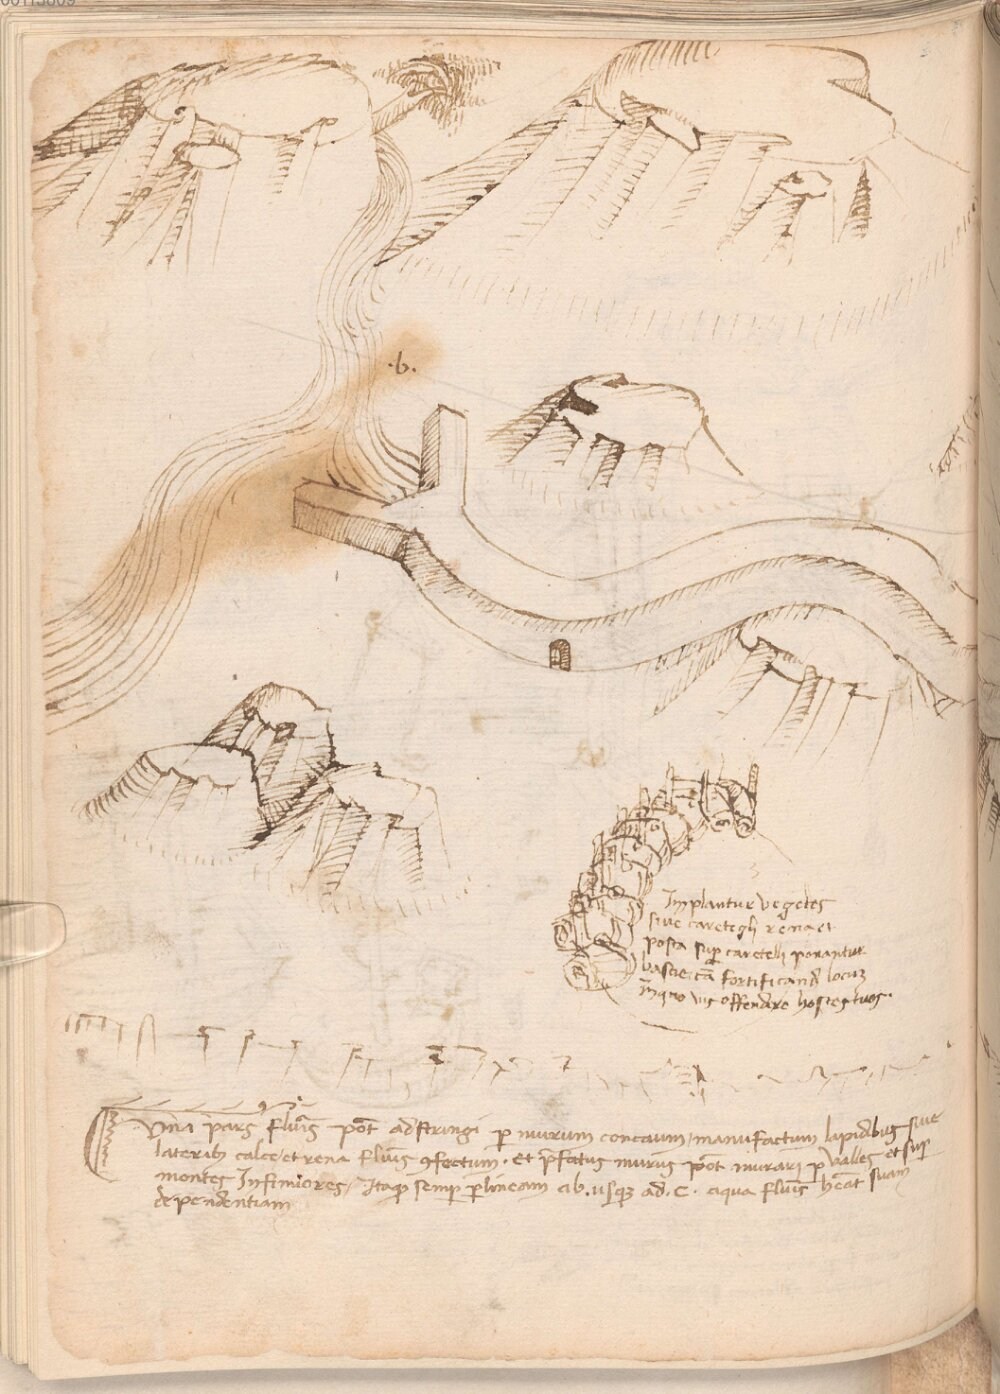 00113809
.b.
Implantur vegetes
sive caretegli rena et
posta sup caretelli ponantur
basterca fortificand locuz
Inquo vis offendere hostes tuos.
Una pars fluis pot adstringi p murum concauum/manufactum lapidbus sive
laterib calce/et rena fluis gfectum. et pfatus murus pot murari p valles et sup
montes Infimiores/ Itaqz semp p lineam ab. usqz ad. C. aqua fluis heat suam
dependentiam